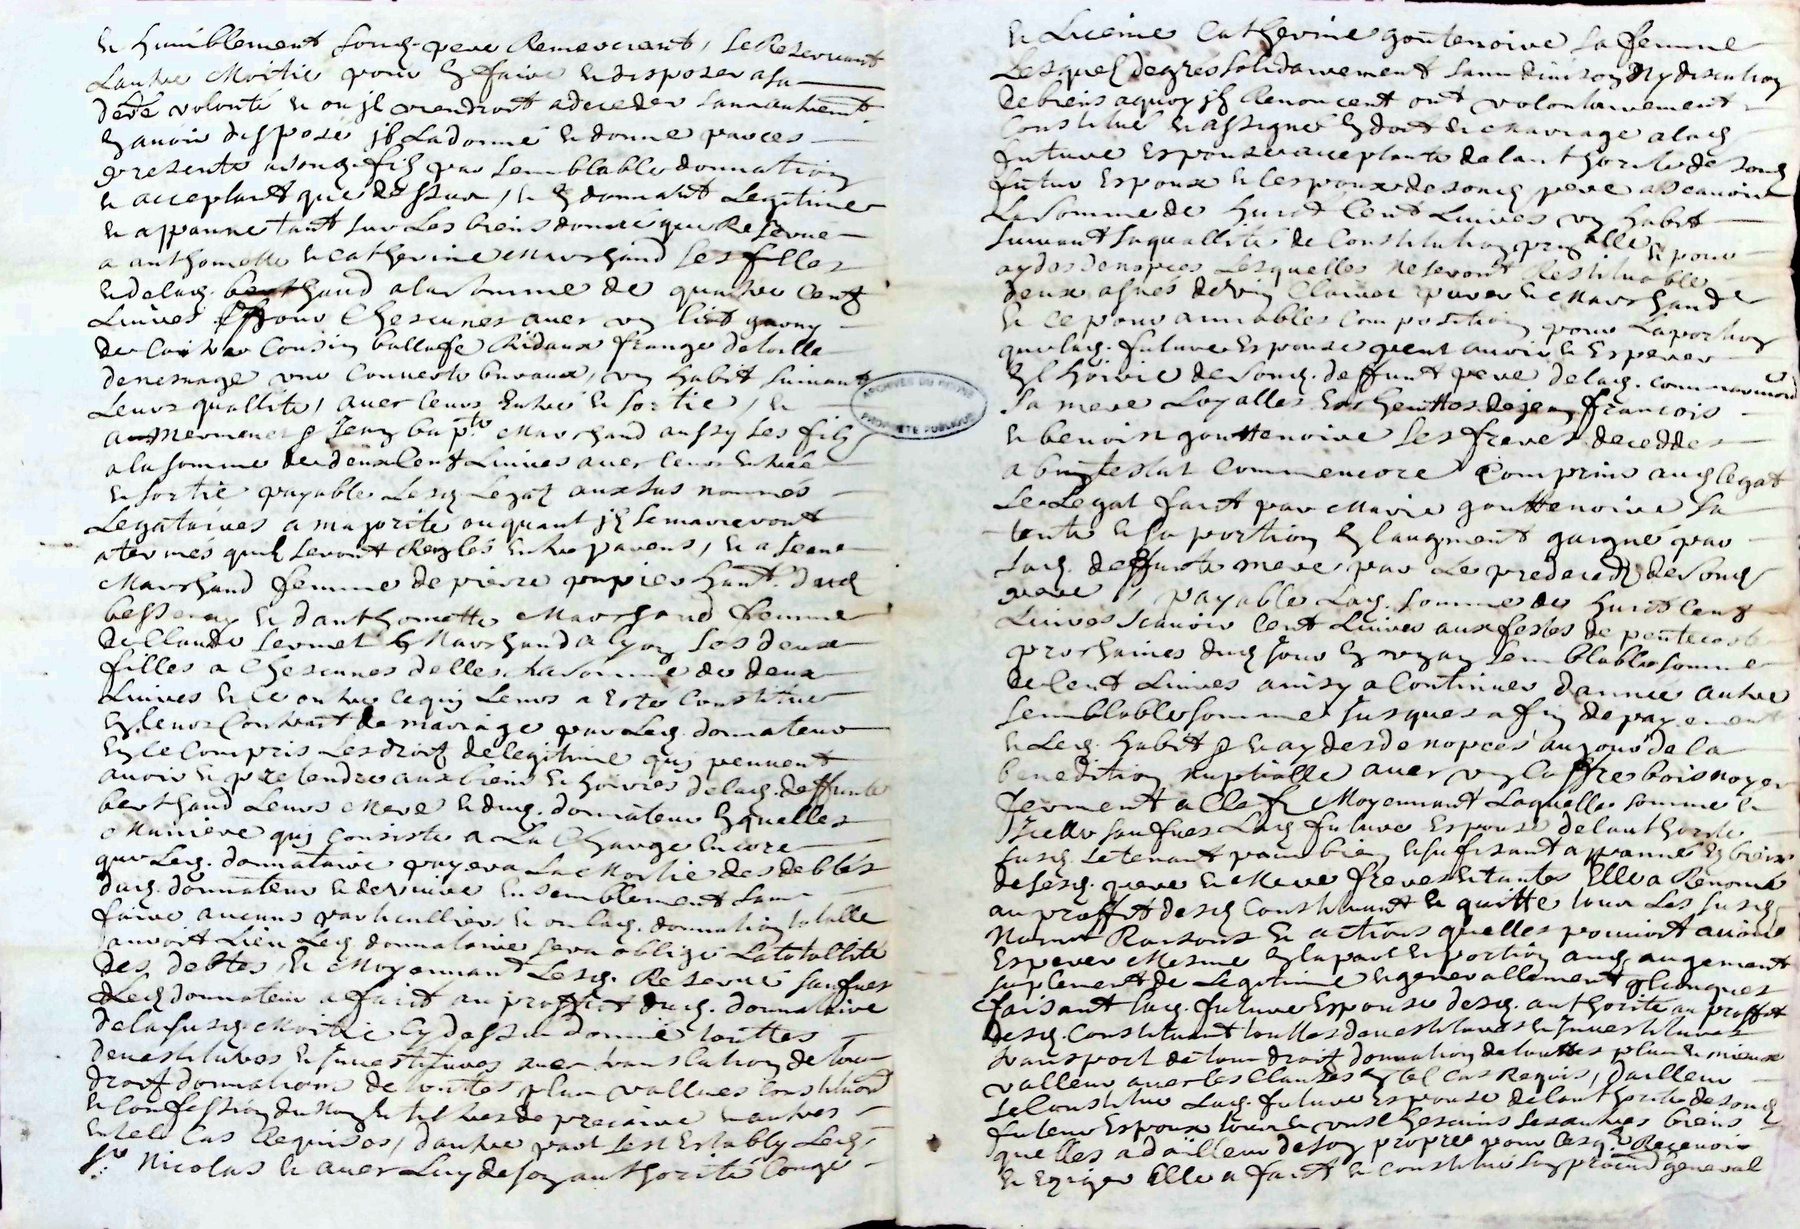 et humblement sond. pere Remerciant, se Reservant
Lautre Moitié pour En faire et disposer a sa
de^re volonté et ou jl viendroit a deceder sans autrem^t
En avoir disposé jl La donné et donne par ces
presente a sond. filz par semblable donnation
et acceptant que dessus, et En donnant Legitimer
et appanne tant sur Les biens donné que Reservé
a anthomette et catherine Marchand ses filles
et de lad. berthaud a la somme de quatre Cent
Livres pour Chescunes avec un lict garny
de Coitre Cousin ballufe Ridaux frange de toille
de mesnage une Couverte bureaux, un habit suivant
Leurs quallité, avec leurs Entré et sortie, et
a Mermenet et Jean bap^te Marchand aussy ses filz
a la somme de deux Cent Livres avec leurs Entrée
et sortie payable Lesd. Legatz aux sus nommés
Legataires a majorité ou quant jlz se marieront
a termes quil seront Reglés Entre parens, et a Jeane
Marchand femme de pierre poupier hant. dud.
bessenay et danthomette Marchand femme
de Claude Sermet Marchand a lyon ses deux
filles a Chescunes delles la somme de deux
Livres et ce outre ce quy Leurs a Esté Constitué
En leurs Contrait de mariage par Led. donnateur
En ce Compris Les droit de legitime quj peuvent
avoir et pretendre aux biens et hoiries de lad. deffunte
berthaud Leurs Mere et dud. donnateur En quelles
Maniere quj Consiste a La Charge Encore
que Led. donnataire payera La Moitié des debtes
dud. donnateur et de vivre Ensemblement sans
faire aucuns particulliers et ou lad. donnation totalle
auroit Lieu Led. donnataire sera obligé La totallité
des debtes, et Moyennant Lesd. Reserve saufues
Led. donnateur a fait au proffict dud. donnataire
de la susd. Moitié Cy dessus donné touttes
devestitures et Investitures avec translation de tous
droit donnations de touttes plus vallues Constitution
et Confession du Nom et tiltres de precaire et autres
En tel Cas Requises, dautre part sest Estably Led.
S^r Nicolas et avec Luy de son authorité Conge
et Licence Catherine gouttenoire sa femme
Lesquelz degres solidairement sans division Ny discution
de biens a quoy jlz Renoncent ont volontairement
Constitué et assigné En dot et mariage a lad.
future Espouse acceptante de lauthorité de sond.
futur Espoux et lespoux de sond. pere a scavoir
La somme de huict Cent Livres un habit
suivant sa quallité de Constitution et pour
aydes de nopces Lesquelles Ne seront Restituable
deux asnés de vin Clairet pur et Marchand
et ce pour amiables Composition pour La portion
que lad. future Espouse peut avoir et Esperer
En Lhoirie de sond. deffunt pere de lad. Commarmond
sa mere Loyalles de jean francois
et benoist gouttenoire ses freres deceddes
ab intestat Comm encore Comprins aud. legat
Le Legat fait par Marie gouttenoire sa
tente et sa portion En laugment gaigné par
sad. deffunte mere par Le predecedz de sond.
pere, payable Lad. somme de huict Cent
Livres scavoir Cent Livres aux festes de pentecoste
prochaines dud. jour En un an semblable somme
de Cent Livres ainsy a Continuer dannée autre
semblable somme jusques a fin de payement
et Led. habit et aydes de nopces au jour de la
benedition nuptialle avec un Coffre bois noyer
fermant a Clef Moyennant Laquelle somme et
Icelle saufues Lad. future Espouse de lauthorité
susd. se tenant pour bien et sufisant appanné En biens
de sesd. pere et Mere freres et tantes Elle a Renoncé
au proffit desd. Constituant et quitte tous Les susd.
Noms Raisons et actions quelles pourroit avoir
Esperer Mesme En la part et portion aud. augement
suplement de Legitime et generallement quelconques
faisant lad. future Espouse desd. authorité au proffit
desd. Constituant touttes devestitures et Investitures
transport de tous droit donnation de touttes plus et mieux
valleur avec les Clauses En tel Cas Requis, dailleur
se Constitue Lad. future Espouse de lauthorité de sond.
futeur Espoux tous et uns Chescuns ses autres biens
quelles a dailleur de son propre pour lesq. Recevoir
et Exiger Elle a fait et Constitué son procur general